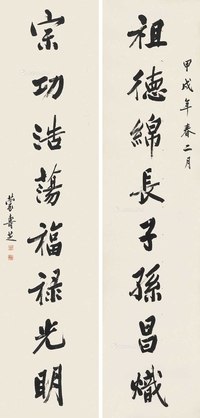 甲戌年春二月
祖德綿長子孫昌熾
宗功浩蕩福禄光明